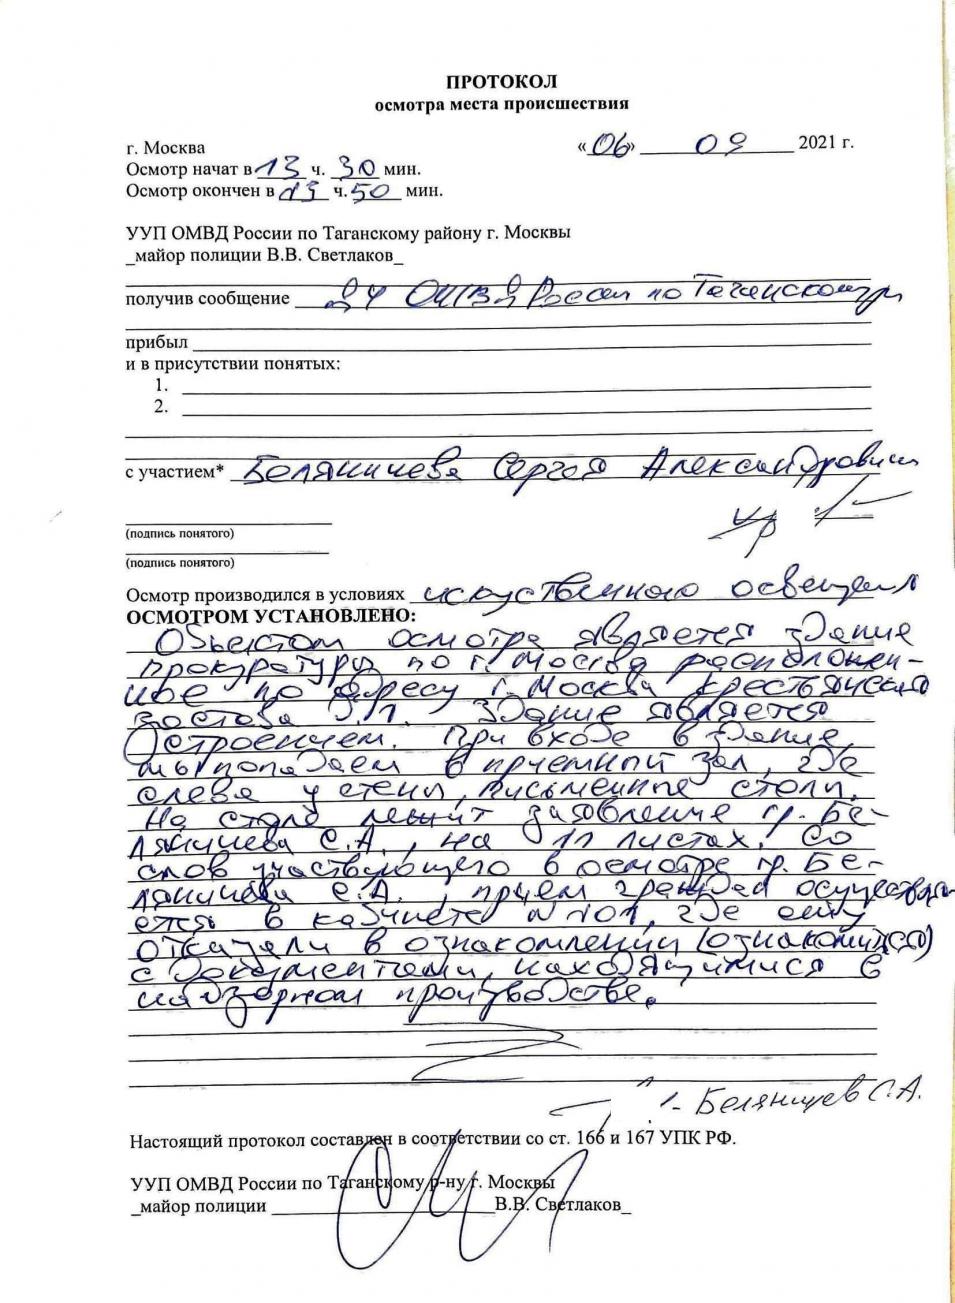 ПРОТОКОЛ
осмотра места происшествия
г. Москва «06» 09 2021 г.
Осмотр начат в 13 ч. 30 мин.
Осмотр окончен в 13 ч. 50 мин.
УУП ОМВД России по Таганскому району г. Москвы
_майор полиции В.В. Светлаков_
получив сообщение ДЧ ОМВД России по Таганскому р
прибыл
и в присутствии понятых:
1.
2.
с участием* Беляничева Сергея Александрович
(подпись понятого)
(подпись понятого)
Осмотр производился в условиях искуственного освещения
ОСМОТРОМ УСТАНОВЛЕНО:
Объектом осмотра является здание
прокуратуры по г. Москва расположен-
ное по адресу г. Москва крестьянская
застава д.1. Здание является
строением. При входе в здание,
мы попадаем в приемный зал, где
слева у стены, письменные столы.
На столе лежит заявление гр. Бе-
ляничева С.А., на 11 листах. Со
слов участвующего в осмотре гр. Бе-
ляничева С.А., прием граждан осуществля-
ется в кабинете №101, где ему
отказали в ознакомлении (ознакомиться)
с документами, находящимися в
надзорном производстве.
Беляничев С.А.
Настоящий протокол составлен в соответствии со ст. 166 и 167 УПК РФ.
УУП ОМВД России по Таганскому р-ну г. Москвы
_майор полиции В.В. Светлаков_